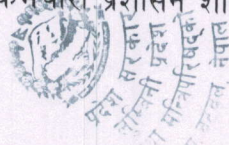 कर्मचारी प्रशासन शा
प्रदेश सरकार
लुम्बिनी प्रदेश
मन्त्रिपरिषद्को
नेपाल